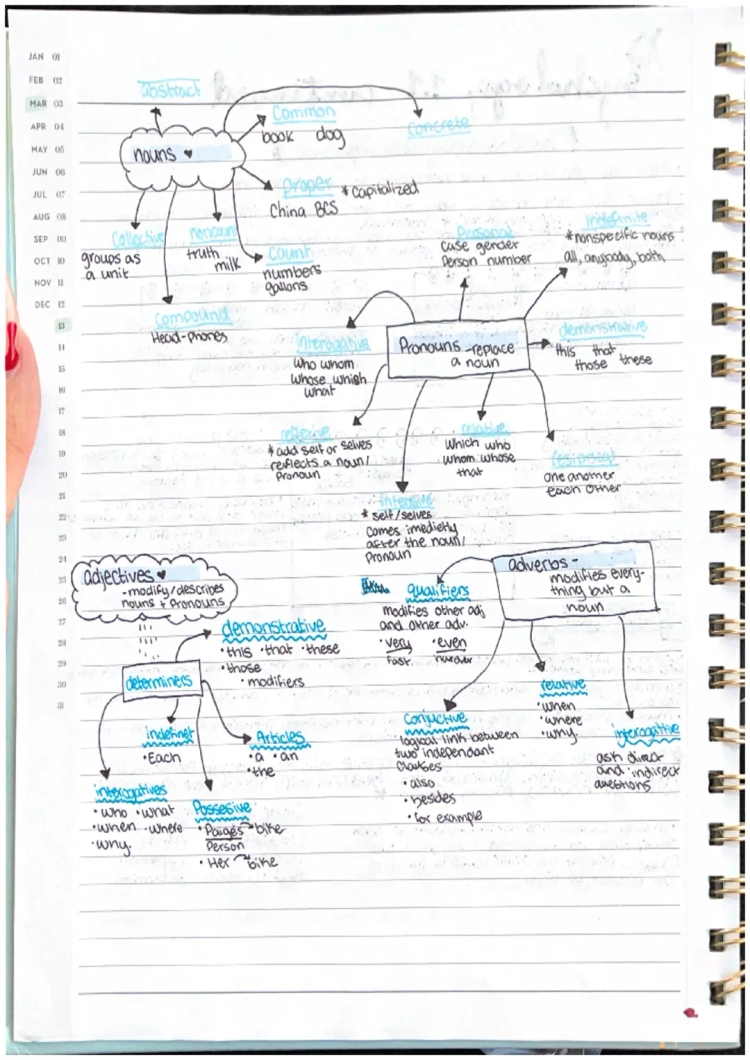 JAN 01
FEB 02
MAR 03
APR 04
MAY 05
JUN 06
JUL 07
AUG 08
SEP 09
OCT 10
NOV 11
DEC 12
13
14
15
16
17
18
19
20
21
22
23
24
25
26
27
28
29
30
31
nouns
abstract
Common
book dog
Concrete
Proper *Capitalized
China BCS
Collective
groups as
a unit
noncount
truth
milk
Count
numbers
gallons
Compound
Head-phones
Pronouns -replace
a noun
Personal
case gender
Person number
indefinite
*nonspecific nouns
all, anybody, both
demonstrative
this that
those these
Interogative
Who whom
whose which
what
reflexive
*add self or selves
reflects a noun/
Pronoun
intensive
* self/selves
comes imedietly
after the noun/
Pronoun
relative
which who
whom whose
that
reciprocal
one another
each other
adjectives
-modify/describes
nouns + Pronouns
determiners
demonstrative
•this •that •these
•those
•modifiers
indefinet
•Each
Articles
•a •an
•the
interogatives
•who •what
•when •where
•why
Possesive
•Paiges bike
Person
•Her bike
adverbs -
modifies every-
thing but a
noun
qualifiers
modifies other adj
and other adv.
•very •even
Fast
Conjuctive
logical link between
two independant
clauses
•also
•besides
•for example
relative
•when
•where
•why
interogative
ask direct
and indirect
questions